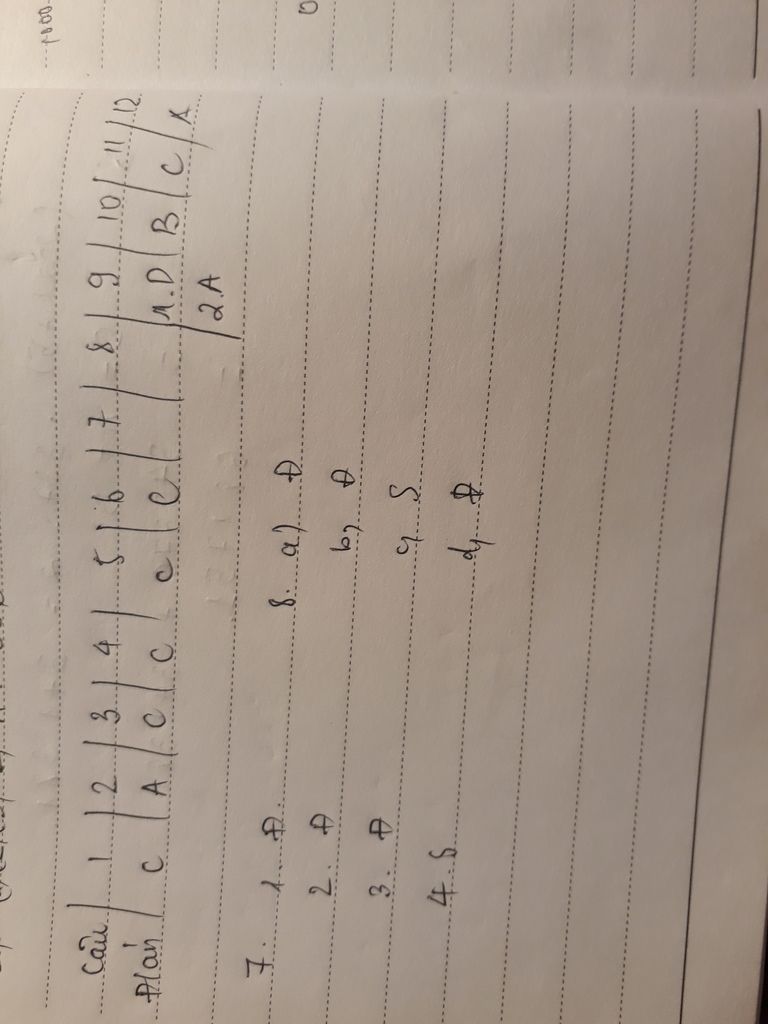 Câu | 1 | 2 | 3 | 4 | 5 | 6 | 7 | 8 | 9 | 10 | 11 | 12
Đ/án | C | A | C | C | C | C | | | 1. D | B | C | A
2. A
7. 1. Đ. 8. a) Đ
2. Đ b, Đ
3. Đ c, S
4. S d, Đ